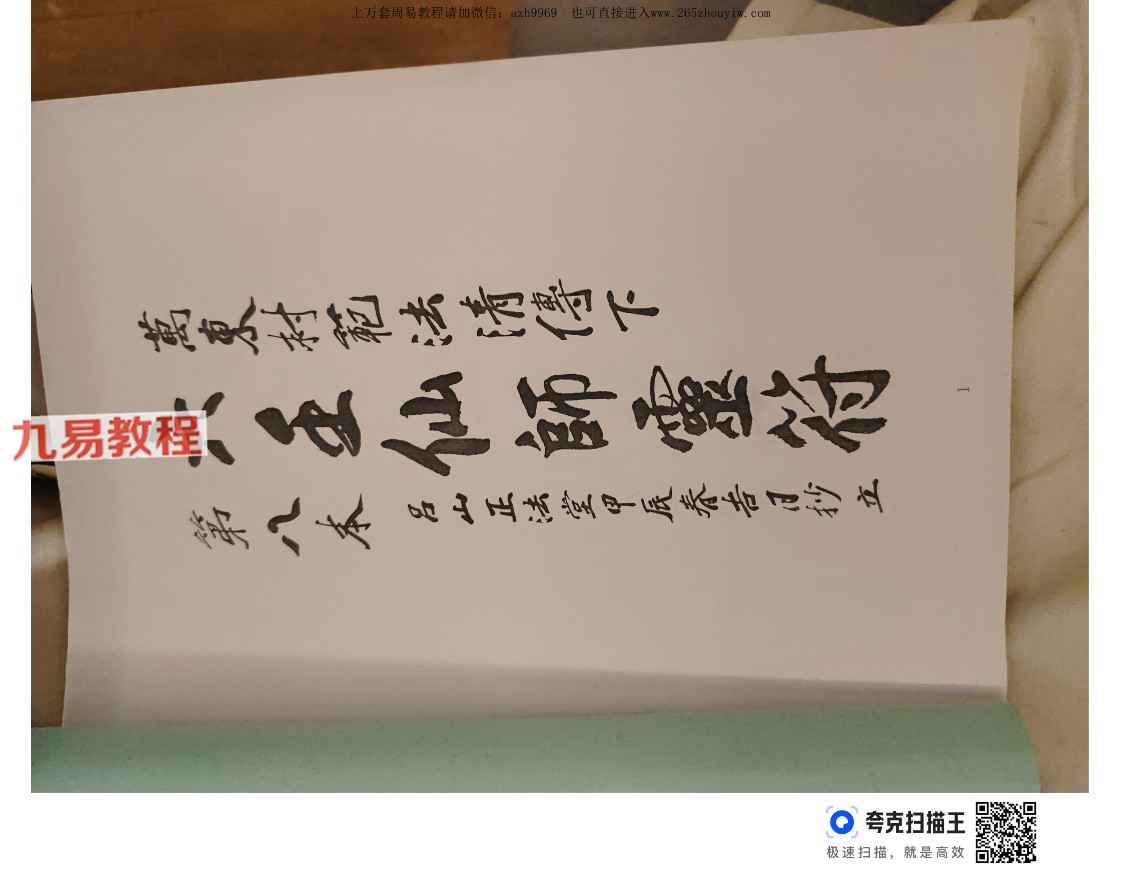 上万套周易教程请加微信：azh9969 也可直接进入www.265zhouyiw.com
萬東村範法清傳下
六壬仙師靈符
第八本 呂山正法堂甲辰春吉日抄立
1
九易教程
夸克扫描王
极速扫描，就是高效